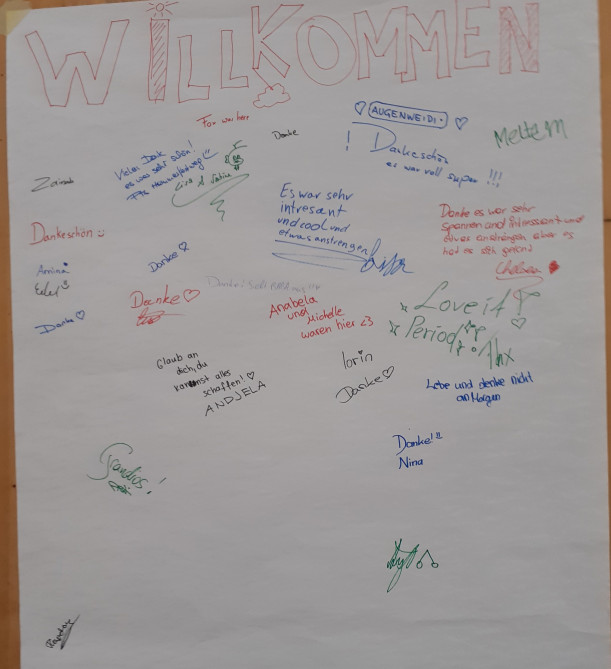 WILLKOMMEN
AUGENWEIDE.
Danke
! Dankeschön
es war voll super !!!
Meltem
Vielen Dank
es war sehr schön!
Zainab
Es war sehr
intresant
und cool und
etwas anstrengen
Danke es war sehr
spannen and intressant und
etwas anstrengen aber es
hat es sich gelohnt
Chelsea
Dankeschön
Amina
Danke
Danke
Danke
Anabela
und Michelle
waren hier <3
Love it
Period
Thx
Glaub an
dich, du
kannst alles
schaffen!
ANDJELA
lorin
Danke
Lebe und denke nicht
an Morgen
Danke!!
Nina
Grandios!